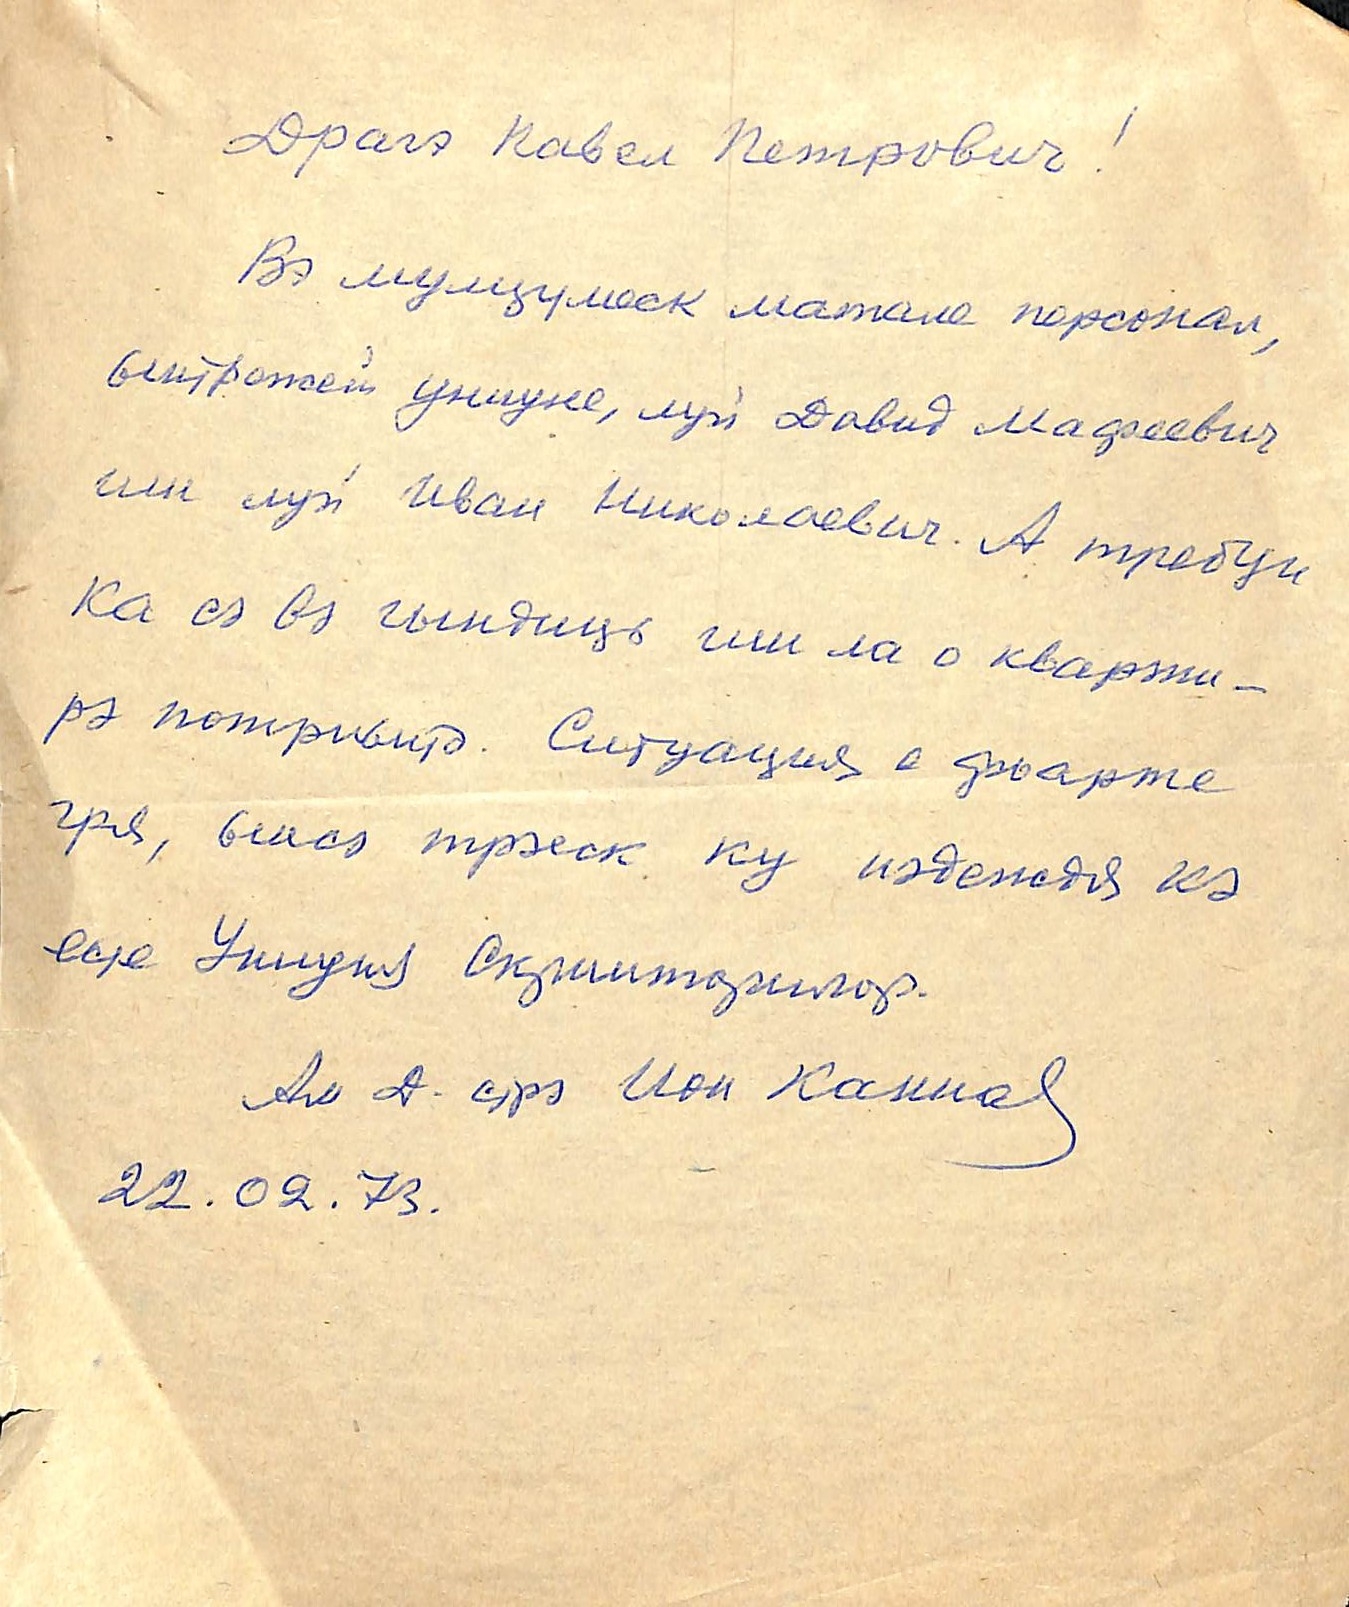 Драгэ Павел Петрович!
Вэ мулцумеск матале персонал,
ынтрежей униуне, луй Давид Мафтеевич
ши луй Иван Николаевич. А требуи
ка сэ вэ гындиць ши ла о кварти-
рэ потривитэ. Ситуация е фоарте
гря, ынсэ трэеск ку нэдеждя кэ
есте Униуня Скрииторилор.
Ал Д-стрэ Ион Канна
22.02.73.